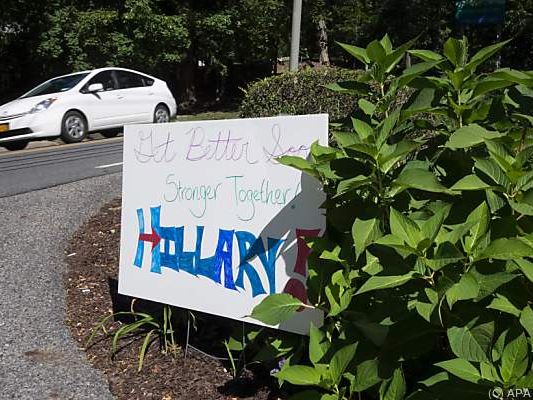 Get Better Soon
Stronger Together!
HILLARY
(C) APA